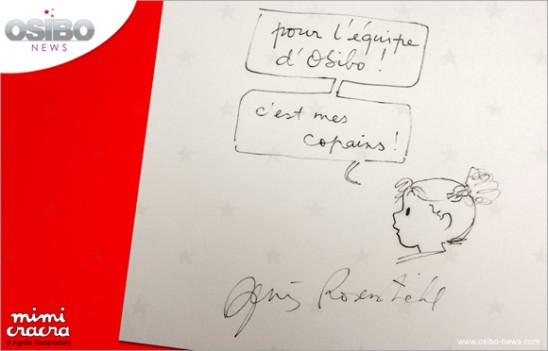 OSIBO
NEWS
pour l'équipe
d'OSibo !
c'est mes
copains !
Agnès Rosenstiehl
mimi
cracra
© Agnès Rosenstiehl
www.osibo-news.com